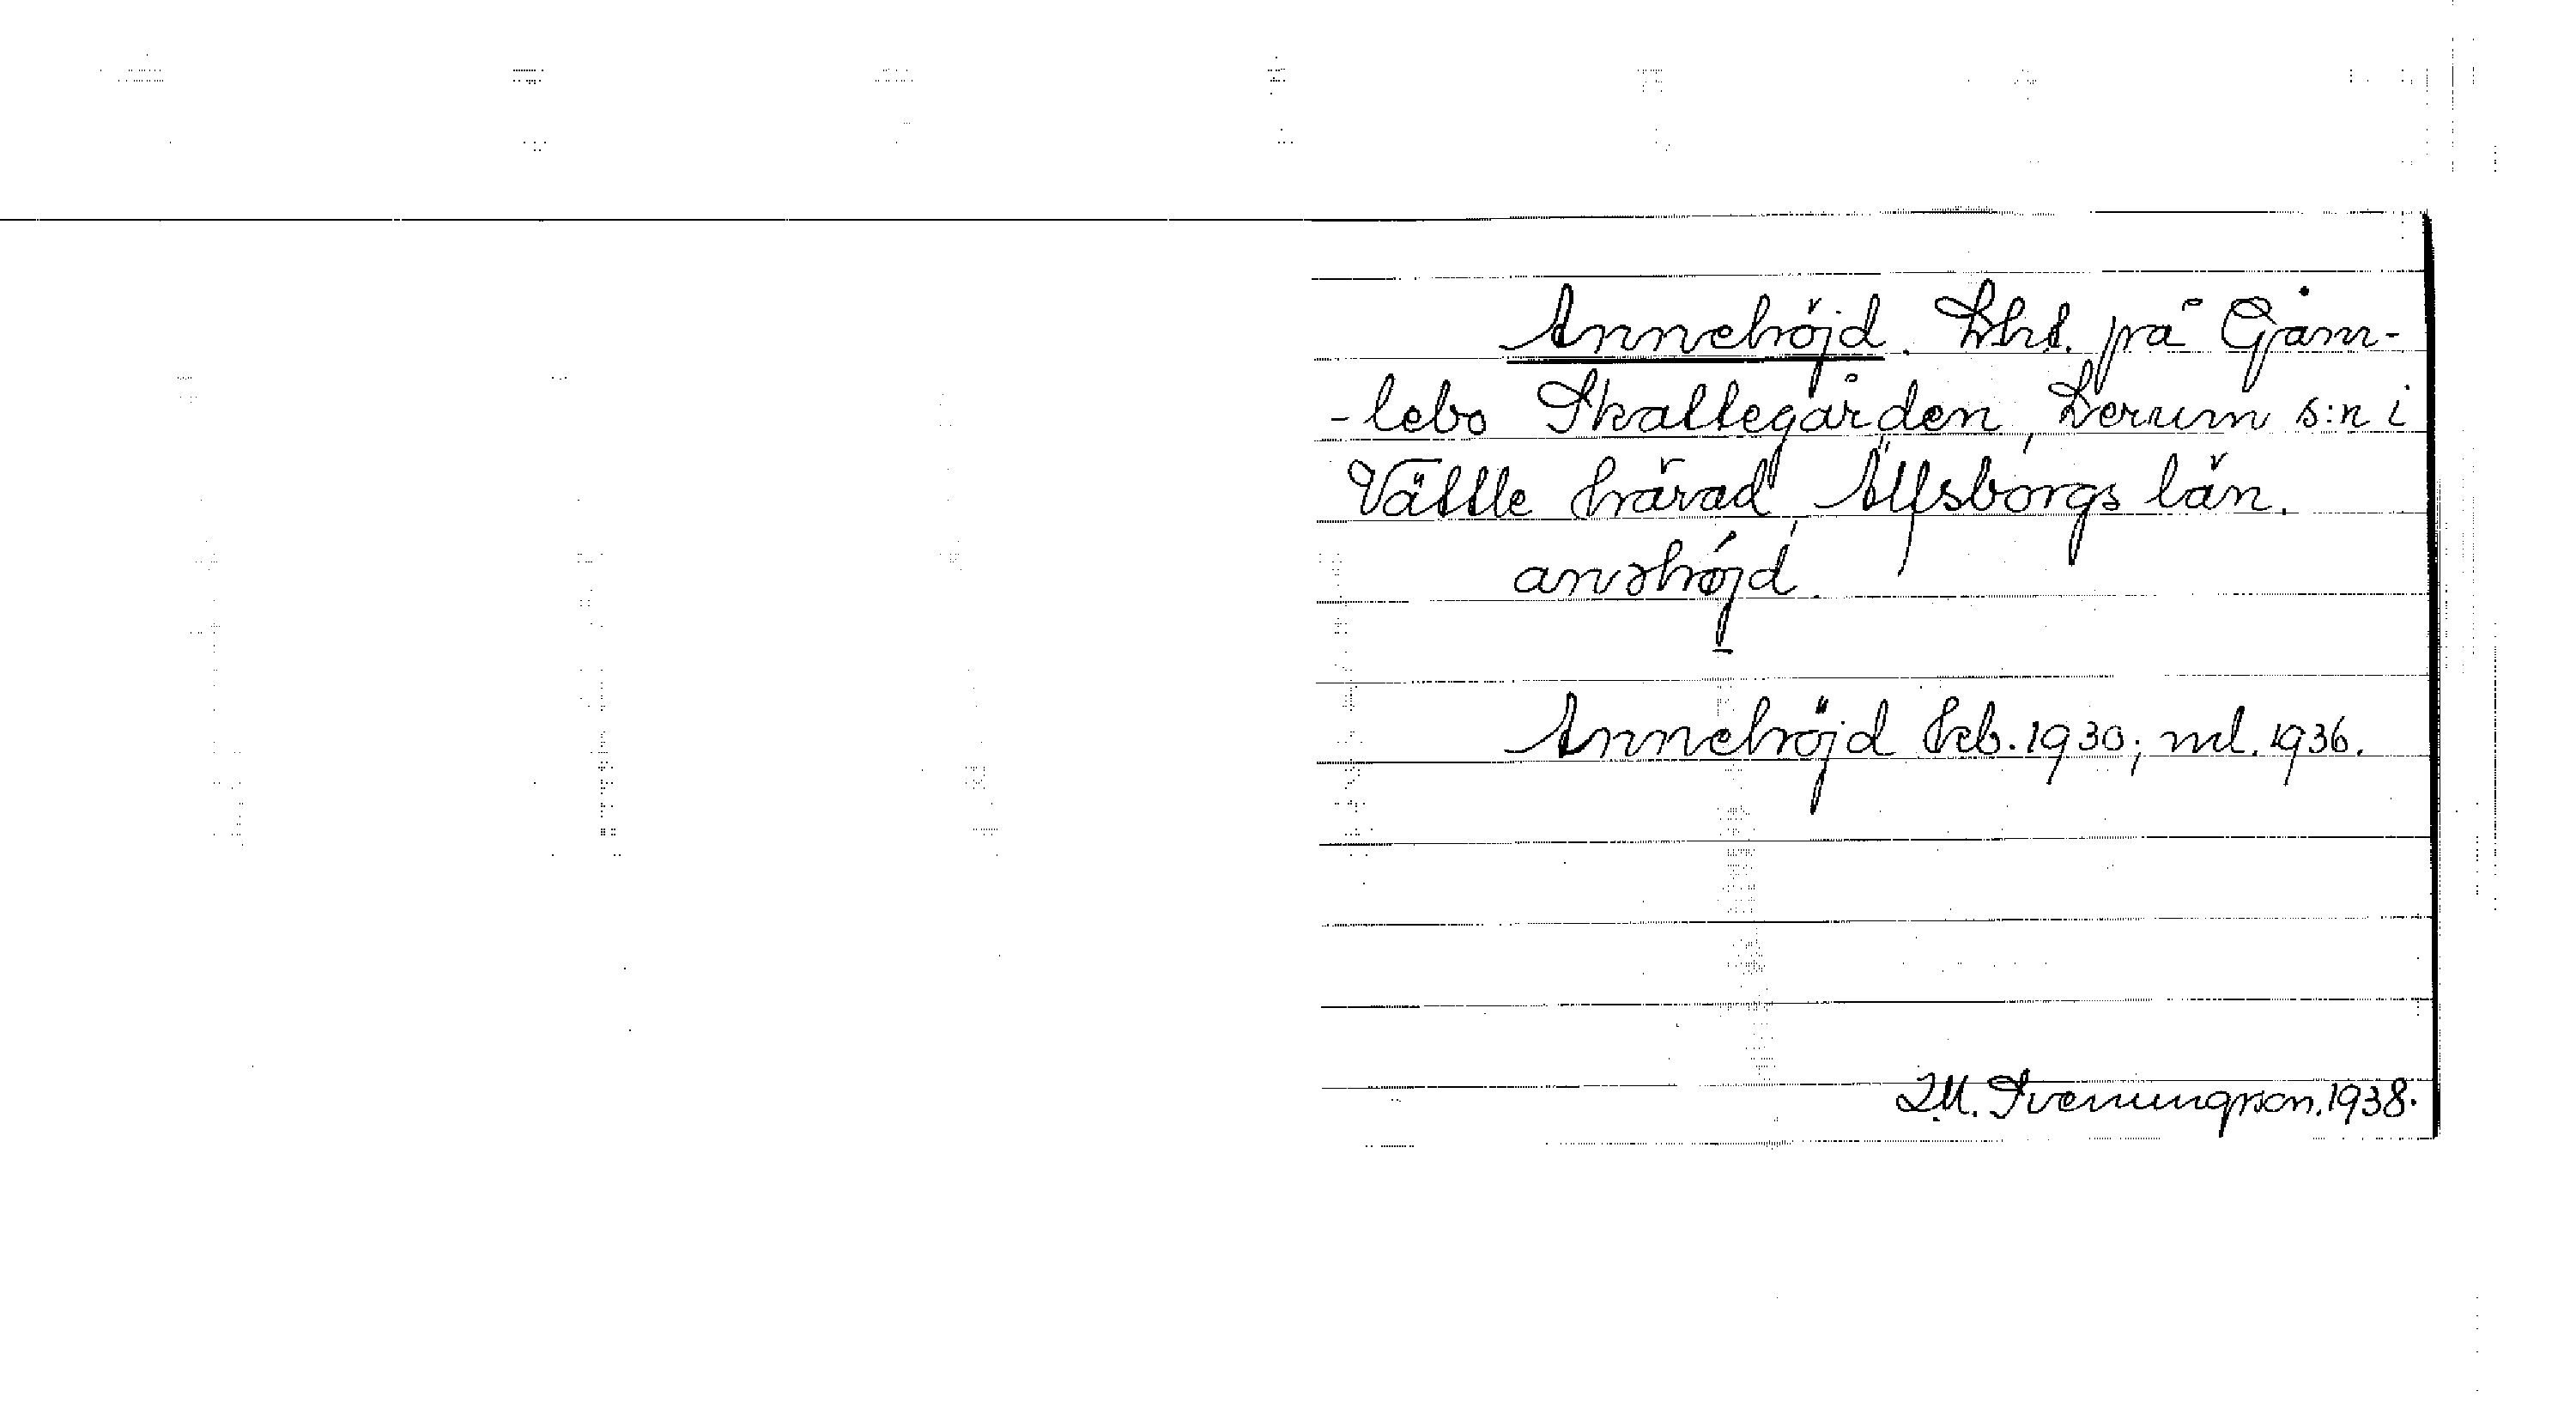 Annehöjd. Lht. på Gam-
-lebo Skattegården, Lerum s:n i
Vättle härad, Älfsborgs län.
anəhöjd.
Annehöjd hfb. 1930; ml. 1936.
I.M. Svenungsson. 1938.